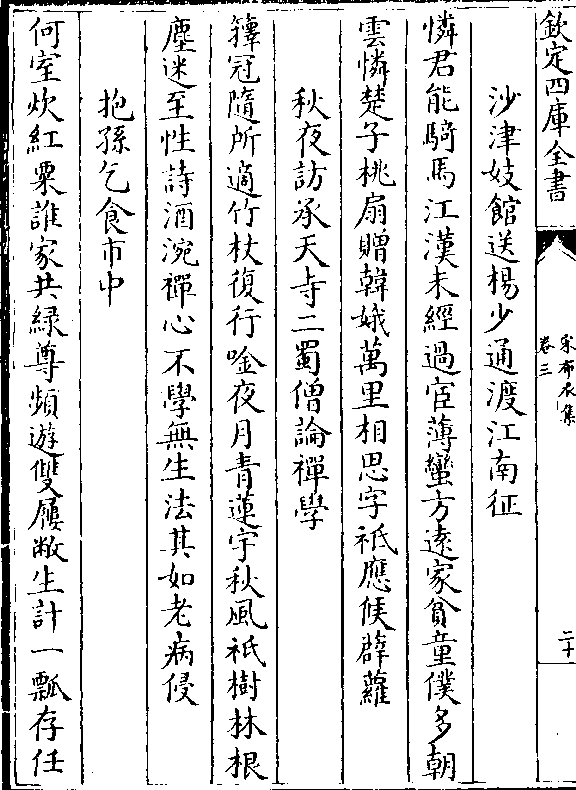 欽定四庫全書
宋布衣集
卷三
二十
沙津妓館送楊少通渡江南征
憐君能騎馬江漢未經過宦薄蠻方遠家貧童僕多朝
雲憐楚子桃扇贈韓娥萬里相思字祗應候薜蘿
秋夜訪承天寺二蜀僧論禪學
籜冠隨所適竹杖復行唫夜月青蓮宇秋風祇樹林根
塵迷至性詩酒涴禪心不學無生法其如老病侵
抱孫乞食市中
何室炊紅粟誰家共緑尊頻遊雙屨敝生計一瓢存任